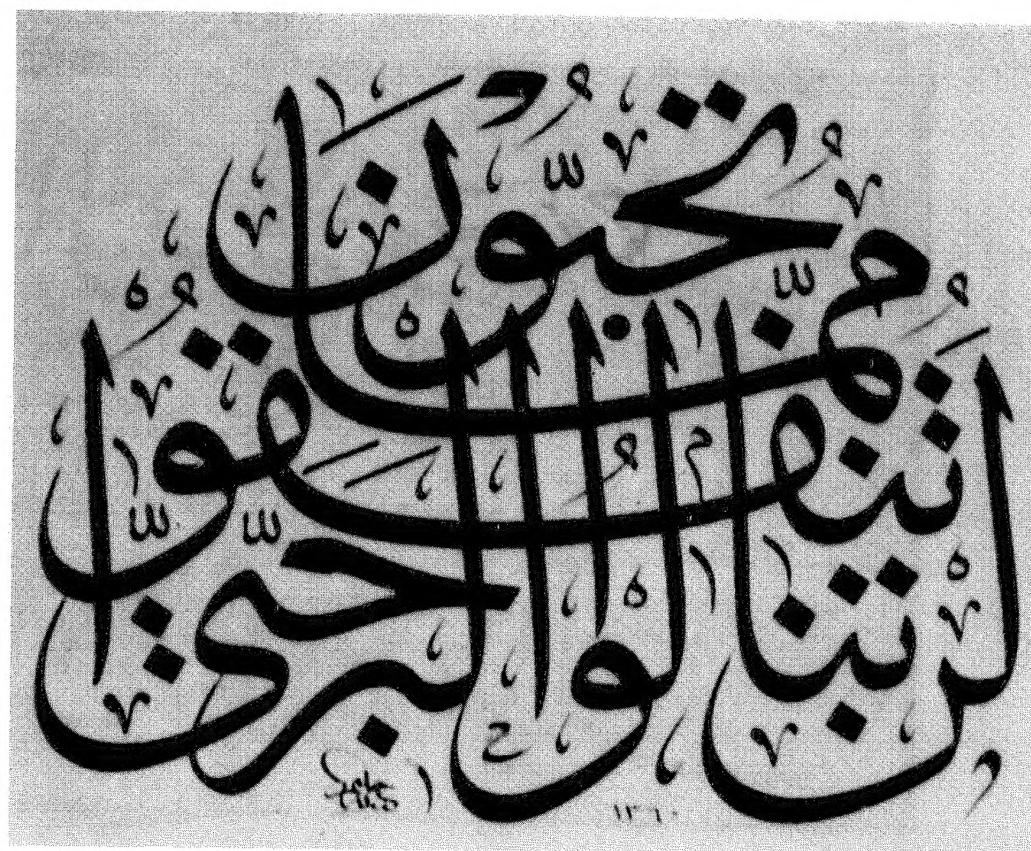 لَنْ تَنَالُوا الْبِرَّ حَتَّى
تُنْفِقُوا
مِمَّا تُحِبُّونَ
١٣٦٠